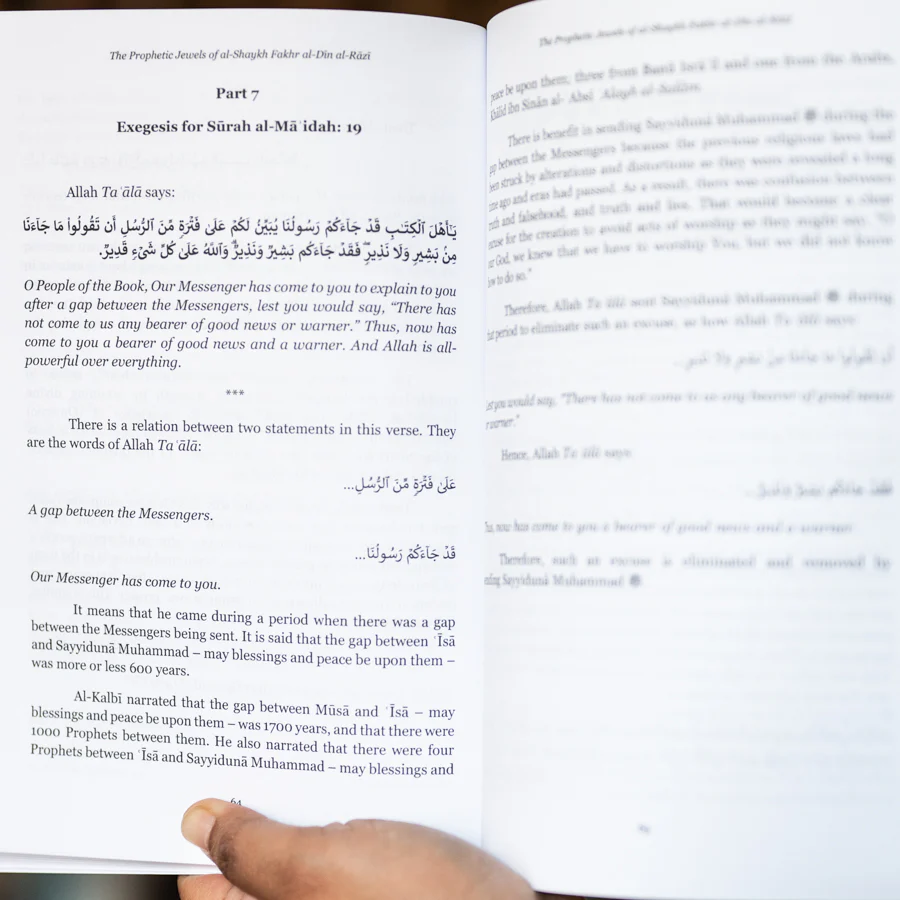 The Prophetic Jewels of al-Shaykh Fakhr al-Dīn al-Rāzī
Part 7
Exegesis for Sūrah al-Māʾidah: 19
Allah Taʿālā says:
يَـٰٓأَهْلَ ٱلْكِتَـٰبِ قَدْ جَآءَكُمْ رَسُولُنَا يُبَيِّنُ لَكُمْ عَلَىٰ فَتْرَةٍ مِّنَ ٱلرُّسُلِ أَن تَقُولُوا۟ مَا جَآءَنَا
مِنۢ بَشِيرٍ وَلَا نَذِيرٍ ۖ فَقَدْ جَآءَكُم بَشِيرٌ وَنَذِيرٌ ۗ وَٱللَّهُ عَلَىٰ كُلِّ شَىْءٍ قَدِيرٌ.
O People of the Book, Our Messenger has come to you to explain to you
after a gap between the Messengers, lest you would say, “There has
not come to us any bearer of good news or warner.” Thus, now has
come to you a bearer of good news and a warner. And Allah is all-
powerful over everything.
***
There is a relation between two statements in this verse. They
are the words of Allah Taʿālā:
عَلَىٰ فَتْرَةٍ مِّنَ ٱلرُّسُلِ...
A gap between the Messengers.
قَدْ جَآءَكُمْ رَسُولُنَا...
Our Messenger has come to you.
It means that he came during a period when there was a gap
between the Messengers being sent. It is said that the gap between ʿĪsā
and Sayyidunā Muhammad – may blessings and peace be upon them –
was more or less 600 years.
Al-Kalbī narrated that the gap between Mūsā and ʿĪsā – may
blessings and peace be upon them – was 1700 years, and that there were
1000 Prophets between them. He also narrated that there were four
Prophets between ʿĪsā and Sayyidunā Muhammad – may blessings and
64
peace be upon them; three from Banū and one from the
Khālid ibn Sinān al-
There is benefit in sending Sayyidunā Muhammad ﷺ during the
between the Messengers because the previous religions have had
been struck by alterations and distortions as they were revealed a long
time ago and eras had passed. As a result, there was confusion between
truth and falsehood, and truth and lies. That would become a clear
excuse for the creation to avoid acts of worship as they might say,
God, we knew that we have to worship You, but we did not know
how to do so.”
Therefore, Allah Taʿālā sent Sayyidunā Muhammad ﷺ during
that period to eliminate such an excuse, as how Allah Taʿālā says:
lest you would say, “There has not come to us any bearer of good news
or warner.”
Hence, Allah Taʿālā says:
Thus, now has come to you a bearer of good news and a warner.
Therefore, such an excuse is eliminated and removed by
sending Sayyidunā Muhammad ﷺ